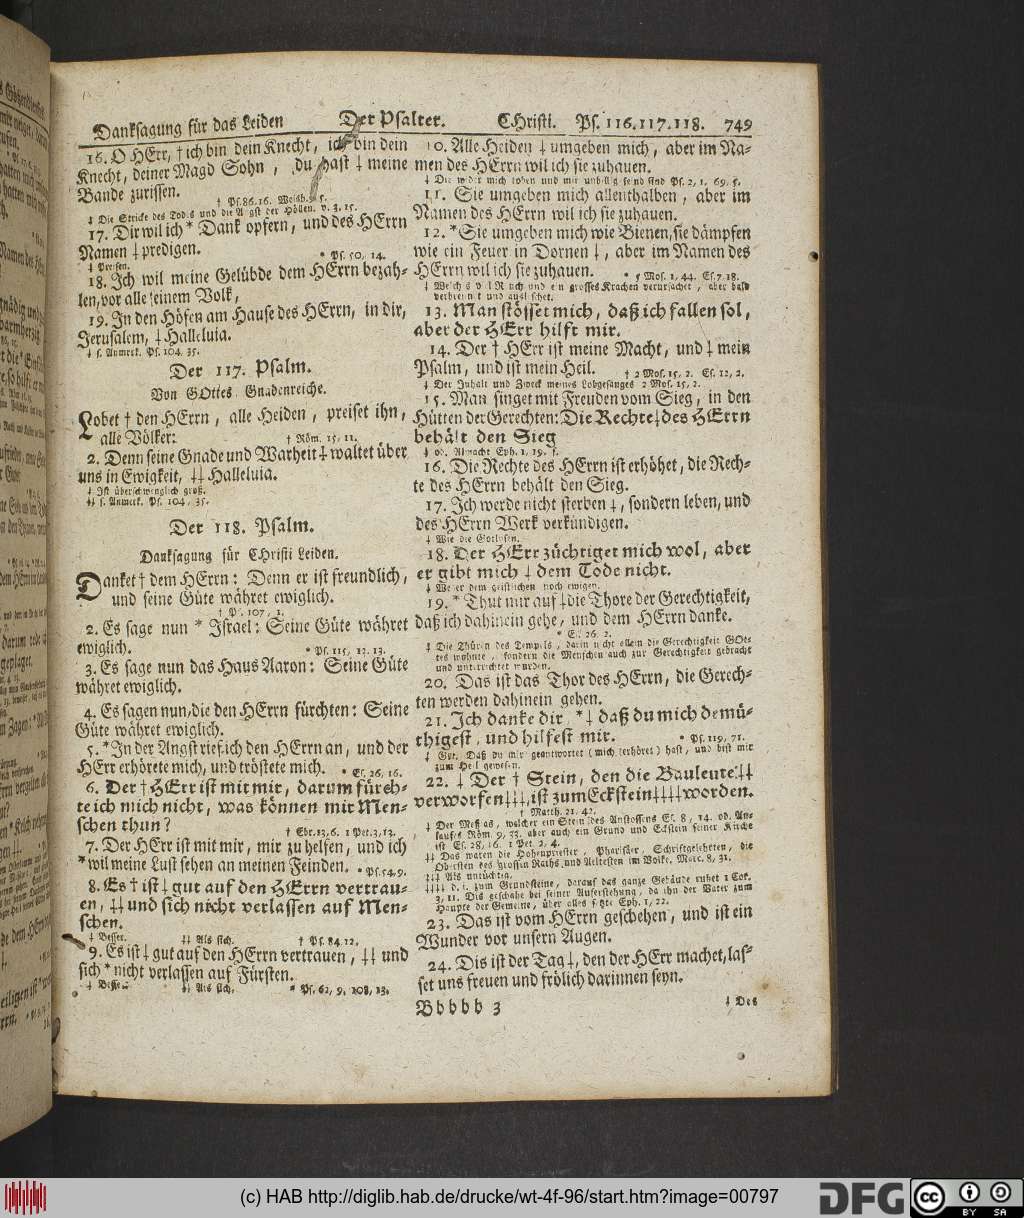 Danksagung für das Leiden Der Psalter. CHristi. Ps. 116.117.118. 749
16. O HErr, † ich bin dein Knecht, ich bin dein
Knecht, deiner Magd Sohn, du hast ‡ meine
Bande zurissen.
† Ps. 86.16. Weish. 9, 5.
‡ Die Stricke des Todes und die Angst der Höllen. v. 3. 15.
17. Dir wil ich * Dank opfern, und des HErrn
Namen ‡ predigen. * Ps. 50, 14.
‡ Preisen.
18. Ich wil meine Gelübde dem HErrn bezah-
len, vor alle seinem Volk,
19. In den Höfen am Hause des HErrn, in dir,
Jerusalem, ‡ Halleluia.
‡ s. Anmerk. Ps. 104. 35.
Der 117. Psalm.
Von GOttes Gnadenreiche.
Lobet † den HErrn, alle Heiden, preiset ihn,
alle Völker: † Röm. 15, 11.
2. Denn seine Gnade und Warheit ‡ waltet über
uns in Ewigkeit, ‡‡ Halleluia.
‡ Ist überschwenglich groß.
‡‡ s. Anmerk. Ps. 104, 35.
Der 118. Psalm.
Danksagung für CHristi Leiden.
Danket † dem HErrn: Denn er ist freundlich,
und seine Güte währet ewiglich.
† Ps. 107, 1.
2. Es sage nun * Israel: Seine Güte währet
ewiglich. * Ps. 115, 12. 13.
3. Es sage nun das Haus Aaron: Seine Güte
währet ewiglich.
4. Es sagen nun, die den HErrn fürchten: Seine
Güte währet ewiglich.
5. * In der Angst rief ich den HErrn an, und der
HErr erhörete mich, und tröstete mich. * Es. 26, 16.
6. Der † HErr ist mit mir, darum fürch-
te ich mich nicht, was können mir Men-
schen thun?
† Ebr. 13, 6. 1 Pet. 3, 13.
7. Der HErr ist mit mir, mir zu helfen, und ich
* wil meine Lust sehen an meinen Feinden. * Ps. 54, 9.
8. Es † ist ‡ gut auf den HErrn vertrau-
en, ‡‡ und sich nicht verlassen auf Men-
schen.
‡ Besser. ‡‡ Als sich. † Ps. 84. 12.
9. Es ist ‡ gut auf den HErrn vertrauen, ‡‡ und
sich * nicht verlassen auf Fürsten.
‡ Besser. ‡‡ Als sich. * Ps. 62, 9. 108, 13.
10. Alle Heiden ‡ umgeben mich, aber im Na-
men des HErrn wil ich sie zuhauen.
‡ Die wider mich toben und mir unbillig feind sind Ps. 2, 1. 69, 5.
11. Sie umgeben mich allenthalben, aber im
Namen des HErrn wil ich sie zuhauen.
12. * Sie umgeben mich wie Bienen, sie dämpfen
wie ein Feuer in Dornen ‡, aber im Namen des
HErrn wil ich sie zuhauen. * 5 Mos. 1, 44. Es. 7. 18.
‡ Welches viel Rauch und ein grosses Krachen verursachet, aber bald
verbrennt und auslischet.
13. Man stösset mich, daß ich fallen sol,
aber der HErr hilft mir.
14. Der † HErr ist meine Macht, und ‡ mein
Psalm, und ist mein Heil. † 2 Mos. 15, 2. Es. 12, 2.
‡ Der Inhalt und Zweck meines Lobgesanges 2 Mos. 15, 2.
15. Man singet mit Freuden vom Sieg, in den
Hütten der Gerechten: Die Rechte ‡ des HErrn
behält den Sieg
‡ od. Almacht Eph. 1, 19. f.
16. Die Rechte des HErrn ist erhöhet, die Rech-
te des HErrn behält den Sieg.
17. Ich werde nicht sterben ‡, sondern leben, und
des HErrn Werk verkündigen.
‡ Wie die Gottlosen.
18. Der HErr züchtiget mich wol, aber
er gibt mich ‡ dem Tode nicht.
‡ Weder dem geistlichen noch ewigen.
19. * Thut mir auf ‡ die Thore der Gerechtigkeit,
daß ich dahinein gehe, und dem HErrn danke.
* Es. 26. 2.
‡ Die Thüren des Tempels, darin nicht allein die Gerechtigkeit GOt-
tes wohnte, sondern die Menschen auch zur Gerechtigkeit gebracht
und unterrichtet wurden.
20. Das ist das Thor des HErrn, die Gerech-
ten werden dahinein gehen.
21. Ich danke dir, * ‡ daß du mich demü-
thigest, und hilfest mir. * Ps. 119, 71.
‡ Gr. Daß du mir geantwortet (mich erhöret) hast, und bist mir
zum Heil gewesen.
22. ‡ Der † Stein, den die Bauleute ‡‡
verworfen ‡‡‡, ist zum Eckstein ‡‡‡‡ worden.
† Matth. 21, 42.
‡ Der Messias, welcher ein Stein des Anstossens Es. 8, 14. od. An-
laufes Röm. 9, 33. aber auch ein Grund und Eckstein seiner Kirche
ist Es. 28, 16. 1 Pet. 2, 4.
‡‡ Das waren die Hohenpriester, Pharisäer, Schriftgelehrten, die
Obersten des grossen Raths und Aeltesten im Volke, Marc. 8, 31.
‡‡‡ Als untüchtig.
‡‡‡‡ d. i. zum Grundsteine, darauf das ganze Gebäude ruhet 1 Cor.
3, 11. Dis geschahe bei seiner Auferstehung, da ihn der Vater zum
Haupte der Gemeine, über alles setzte Eph. 1, 22.
23. Das ist vom HErrn geschehen, und ist ein
Wunder vor unsern Augen.
24. Dis ist der Tag ‡, den der HErr machet, las-
set uns freuen und frölich darinnen seyn.
Bbbbb 3 ‡ Des
(c) HAB http://diglib.hab.de/drucke/wt-4f-96/start.htm?image=00797
DFG cc BY SA